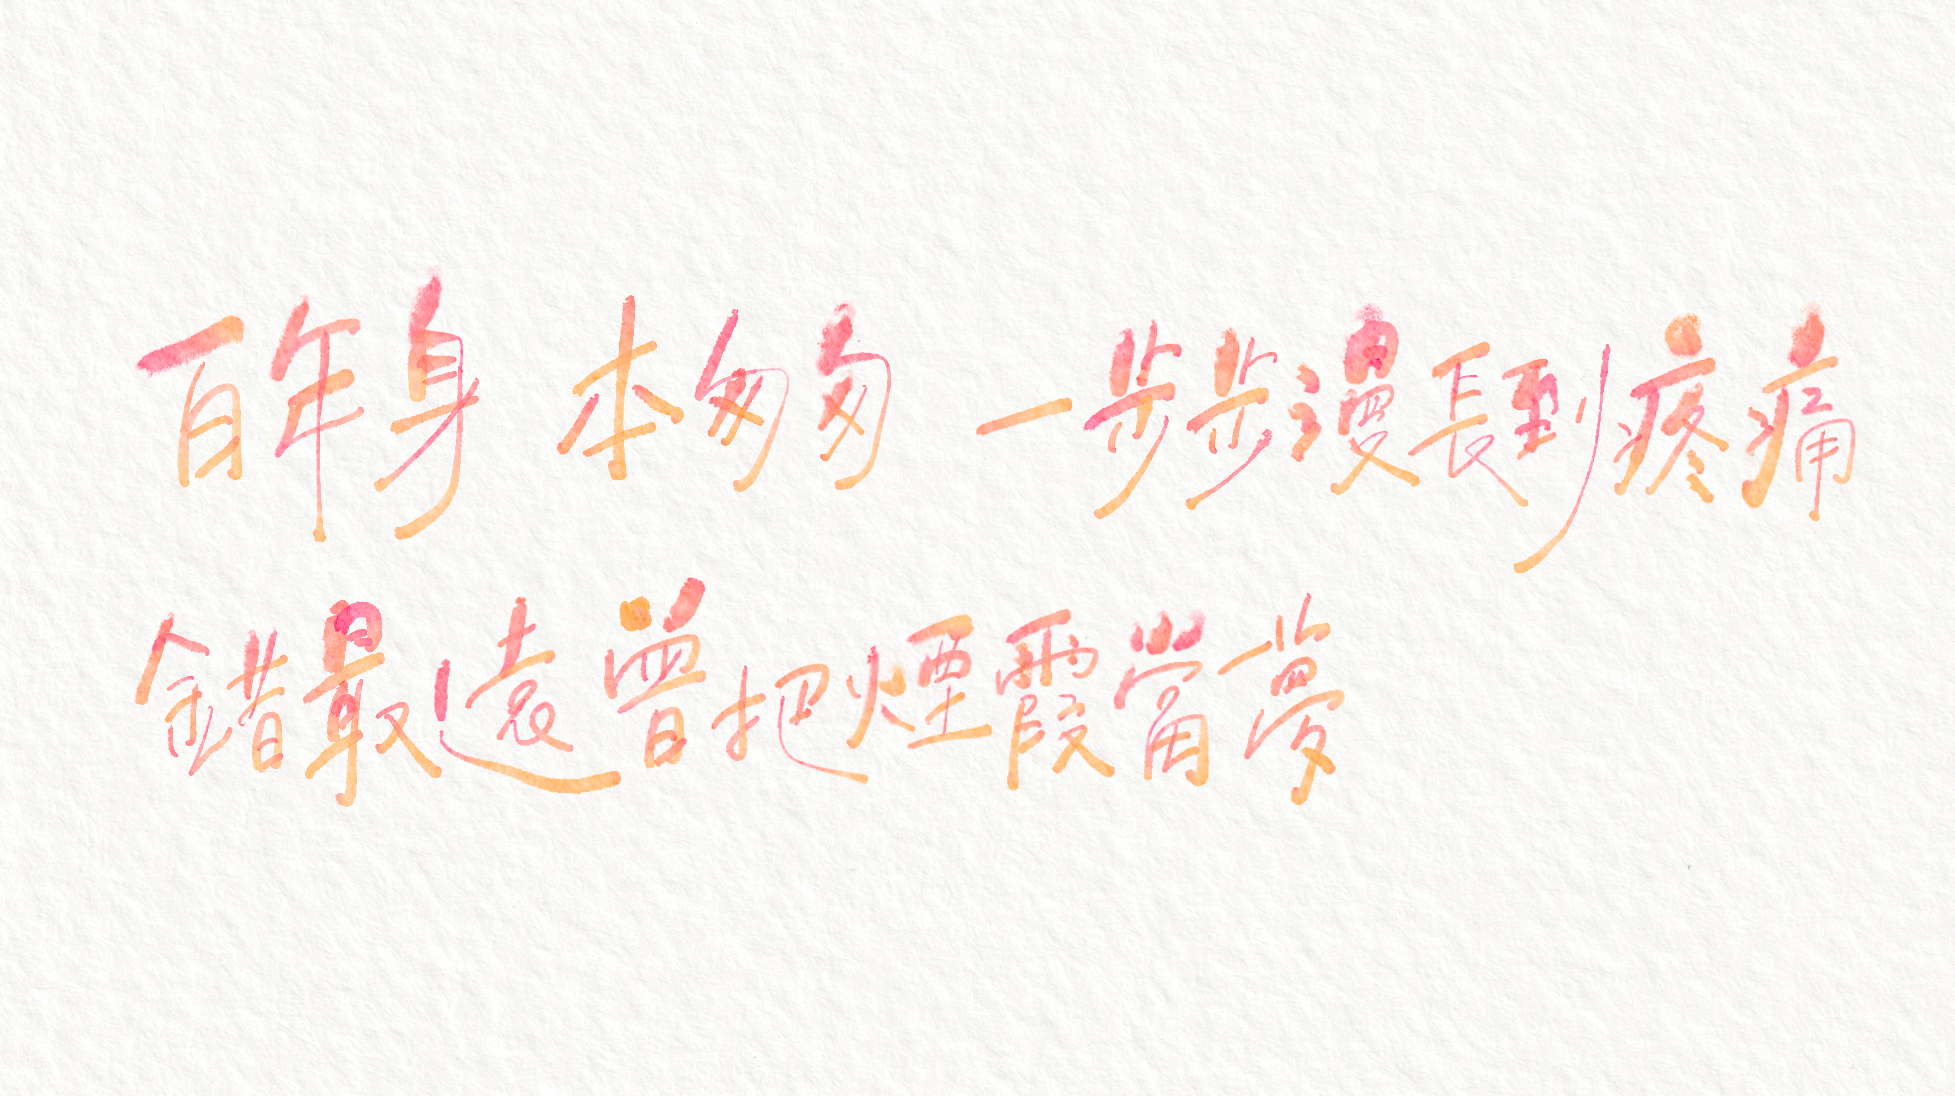 百年身 本匆匆 一步步漫長到疼痛
錯最遠曾把煙霞當夢